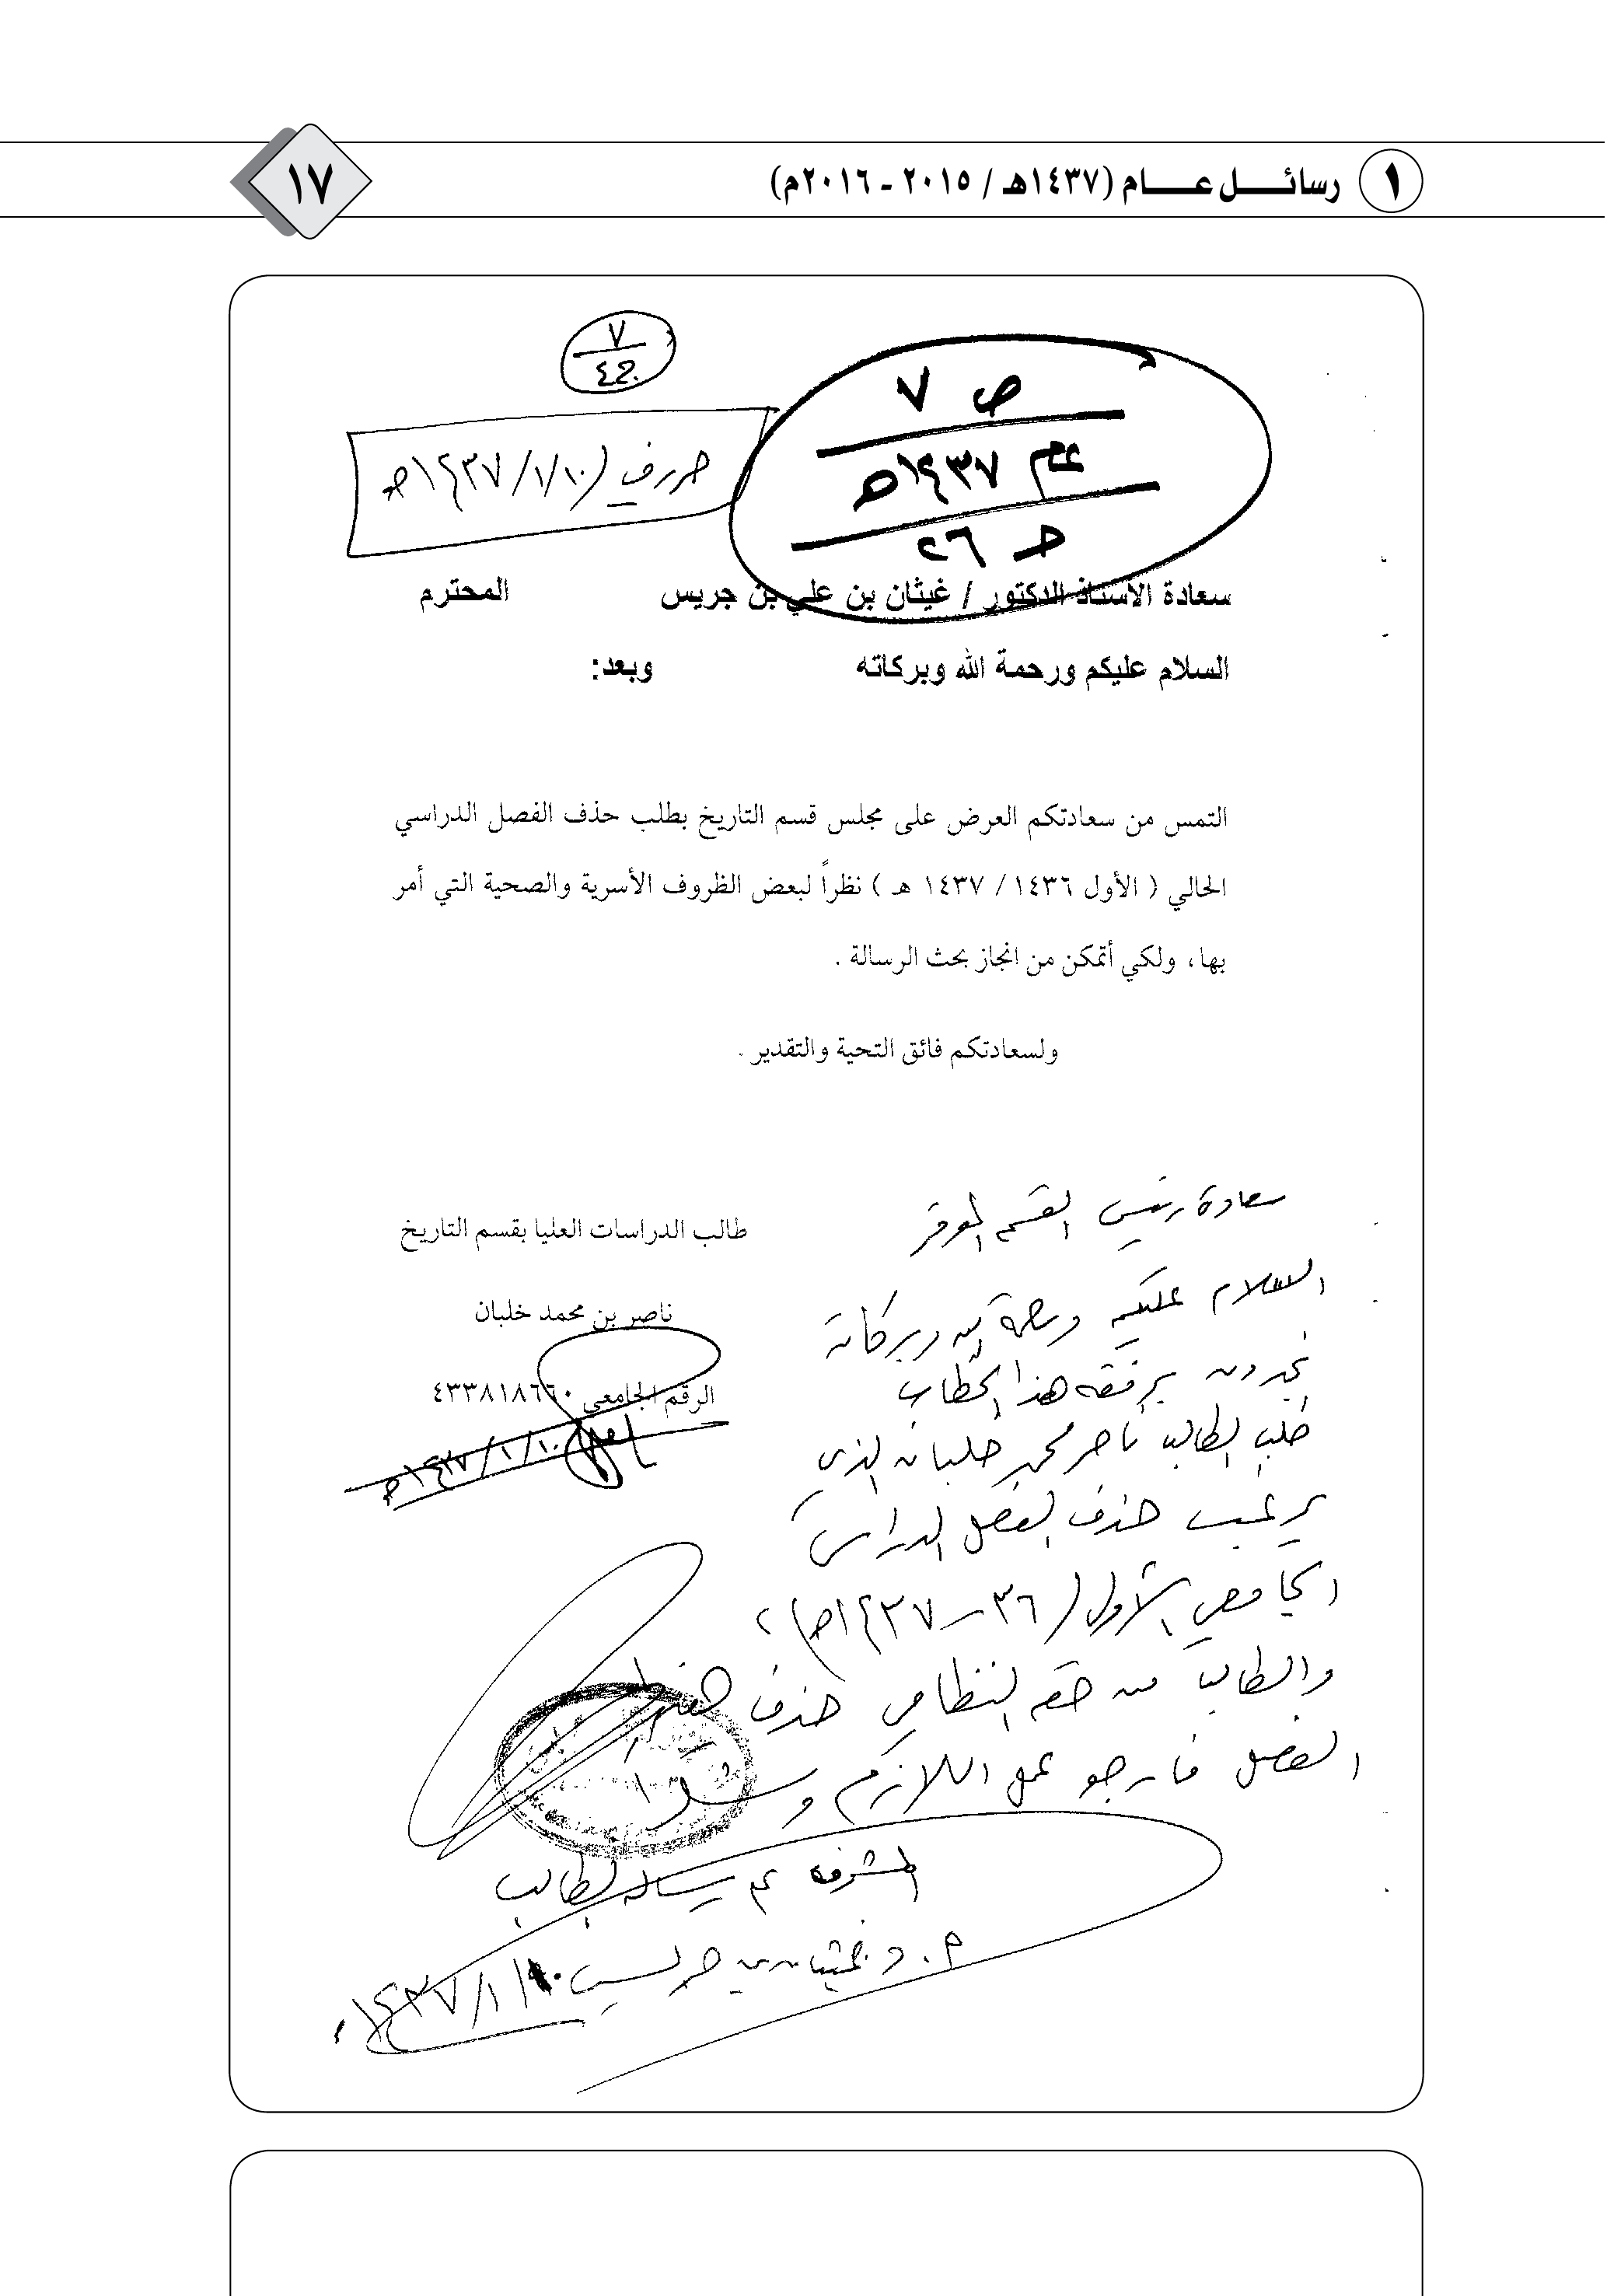 ١ رسائل عام (١٤٣٧هـ / ٢٠١٥ - ٢٠١٦م)
١٧
٧
ص ٧
عام ١٤٣٧هـ
حـ ٢٦
حرر في (١٤٣٧/١/١٠هـ
سعادة الأستاذ الدكتور / غيثان بن علي بن جريس المحترم
السلام عليكم ورحمة الله وبركاته وبعد:
التمس من سعادتكم العرض على مجلس قسم التاريخ بطلب حذف الفصل الدراسي
الحالي ( الأول ١٤٣٦ / ١٤٣٧ هـ ) نظراً لبعض الظروف الأسرية والصحية التي أمر
بها، ولكي أتمكن من انجاز بحث الرسالة .
ولسعادتكم فائق التحية والتقدير .
طالب الدراسات العليا بقسم التاريخ
ناصر بن محمد خلبان
الرقم الجامعي ٤٣٣٨١٨٦٦٠
١٤٣٧/١/١٠هـ
سعادة رئيس القسم الموقر
السلام عليكم ورحمة الله وبركاته
تجدون برفقه هذا الخطاب
طلب الطالب ناصر محمد خلبان الذي
يرغب حذف الفصل الدراسي
الجامعي الأول (٣٦ - ١٤٣٧هـ)،
والطالب من حقه النظامي حذف هذا
الفصل فأرجو عمل اللازم وشكراً
المشرف على رسالة الطالب
أ. د غيثان بن جريس ١٤٣٧/١/١٠